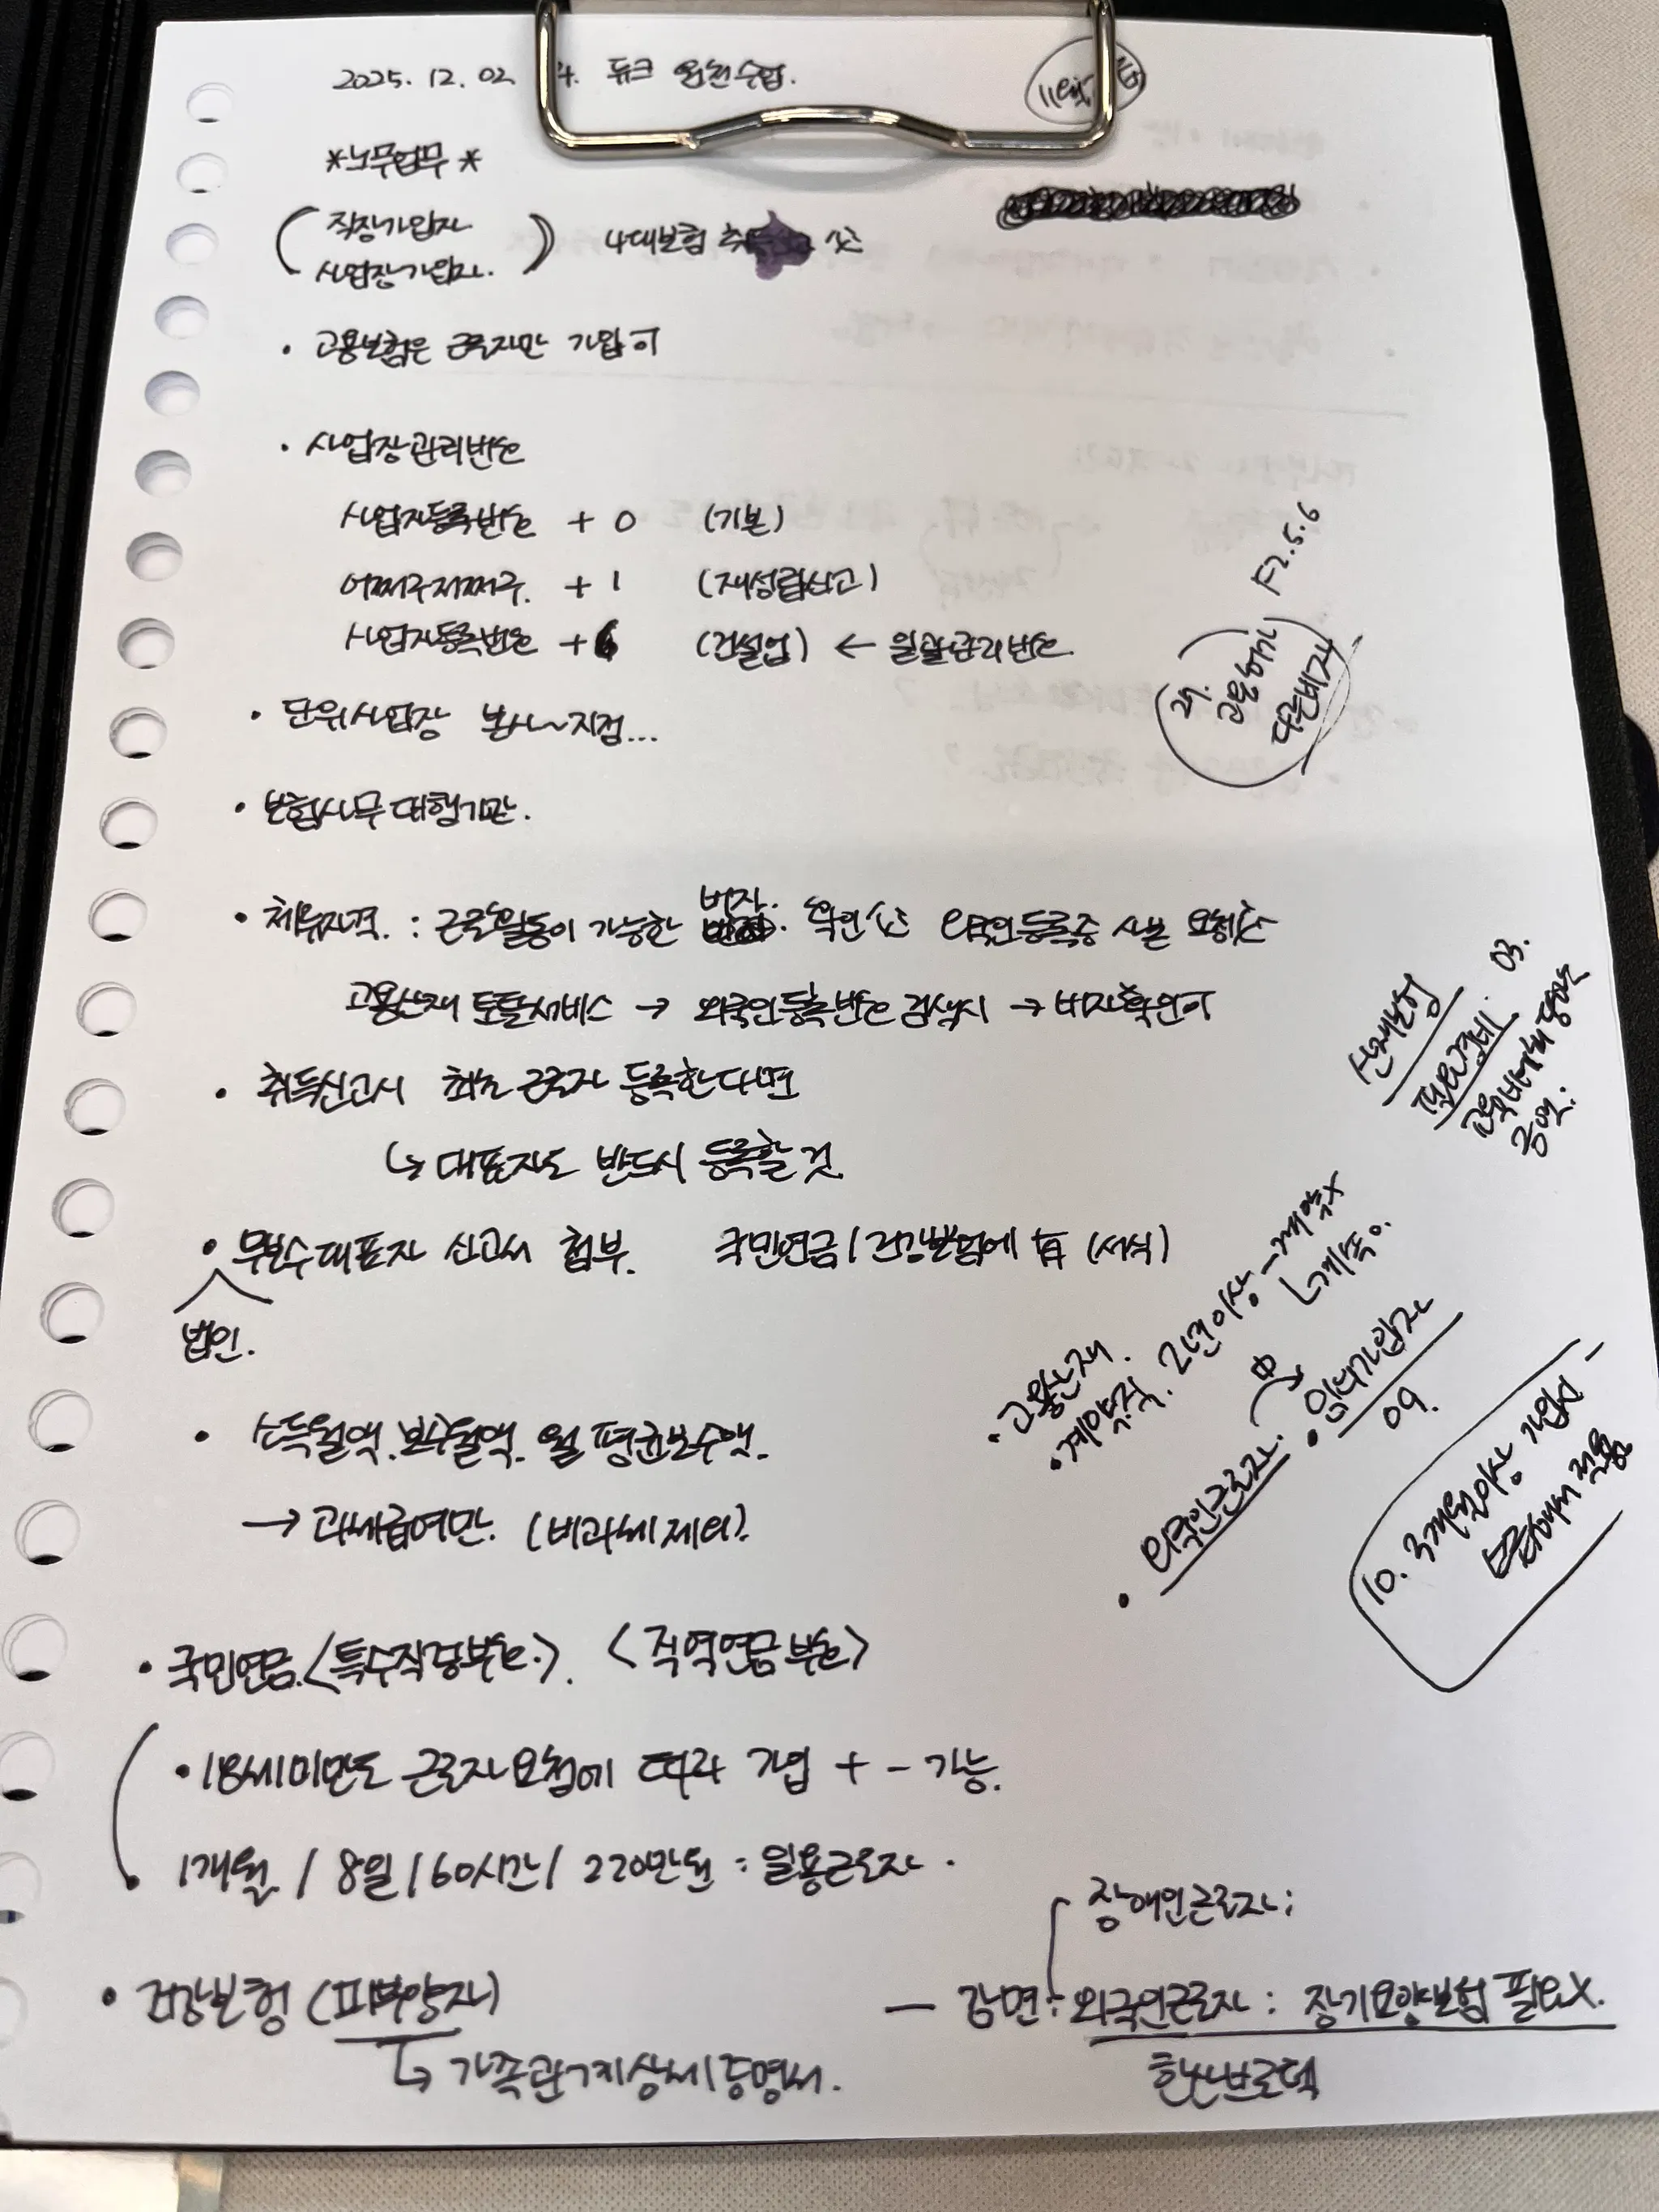 2025. 12. 02 뉴크 원천수업.
*노무업무*
( 직장가입자
사업장가입자. ) 4대보험 취득
· 고용보험은 근로자만 가입可
· 사업장관리번호
사업자등록번호 + 0 (기본)
어쩌구저쩌구. + 1 (재성립신고)
사업자등록번호 +6 (건설업) ← 일괄관리번호
F2.5.6
29.
고용허가
다른비자
· 단위사업장 본사~지점...
· 보험사무대행기관.
· 체류자격. : 근로활동이 가능한 비자. 확인 외국인등록증 사본 요청
고용산재 토탈서비스 → 외국인등록번호 검색시 → 비자확인可
산재보험
03.
· 취득신고시 최초 근로자 등록한다면
↳ 대표자도 반드시 등록할 것
· 무보수대표자 신고서 첨부. 국민연금/건강보험에 有 (서식)
법인.
· 고용산재.
· 계약직. 2년이상 - 계약x
ㄴ계속o.
· 외국인근로자.
· 임의가입자
09.
10. 3개월이상 가입시
· 소득월액. 보수월액. 월 평균보수액.
→ 과세급여만. (비과세제외).
· 국민연금.<특수직종부호.>. <직역연금부호>
· 18세미만도 근로자요청에 따라 가입 + - 가능.
1개월 / 8일 / 60시간 / 220만원 : 일용근로자.
장애인근로자;
· 건강보험 (피부양자)
↳ 가족관계상세증명서.
— 감면 : 외국인근로자 : 장기요양보험 필요X.